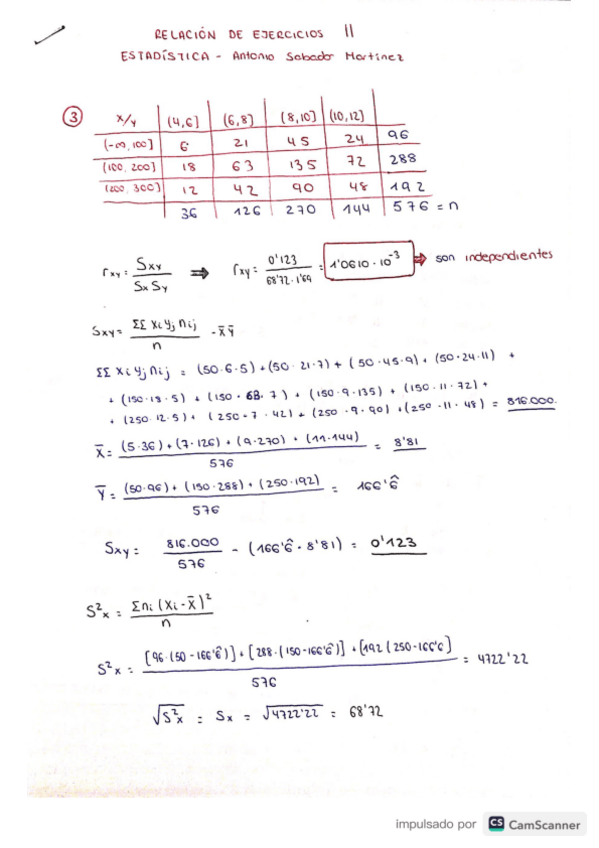 RELACIÓN DE EJERCICIOS II
ESTADÍSTICA - Antonio Sabador Martínez
③ x/y (4,6] (6,8] (8,10] (10,12]
(-∞,100] 6 21 45 24 96
(100,200] 18 63 135 72 288
(200,300] 12 42 90 48 192
36 126 270 144 576 = n
rxy = Sxy / Sx Sy ⇒ rxy = 0'123 / 68'72 · 1'69 = 1'0610 · 10⁻³ ⇒ son independientes
Sxy = ΣΣ xi yj nij / n - x̄ ȳ
ΣΣ xi yj nij = (50·6·5) + (50·21·7) + (50·45·9) + (50·24·11) +
+ (150·18·5) + (150·63·7) + (150·9·135) + (150·11·72) +
+ (250·12·5) + (250·7·42) + (250·9·90) + (250·11·48) = 816.000.
x̄ = (5·36) + (7·126) + (9·270) + (11·144) / 576 = 8'81
ȳ = (50·96) + (150·288) + (250·192) / 576 = 166'6̂
Sxy = 816.000 / 576 - (166'6̂ · 8'81) = 0'123
S²x = Σni (xi - x̄)² / n
S²x = [96·(50-166'6̂)] + [288·(150-166'6̂)] + [192(250-166'6] / 576 = 4722'22
√S²x = Sx = √4722'22 = 68'72
impulsado por CS CamScanner